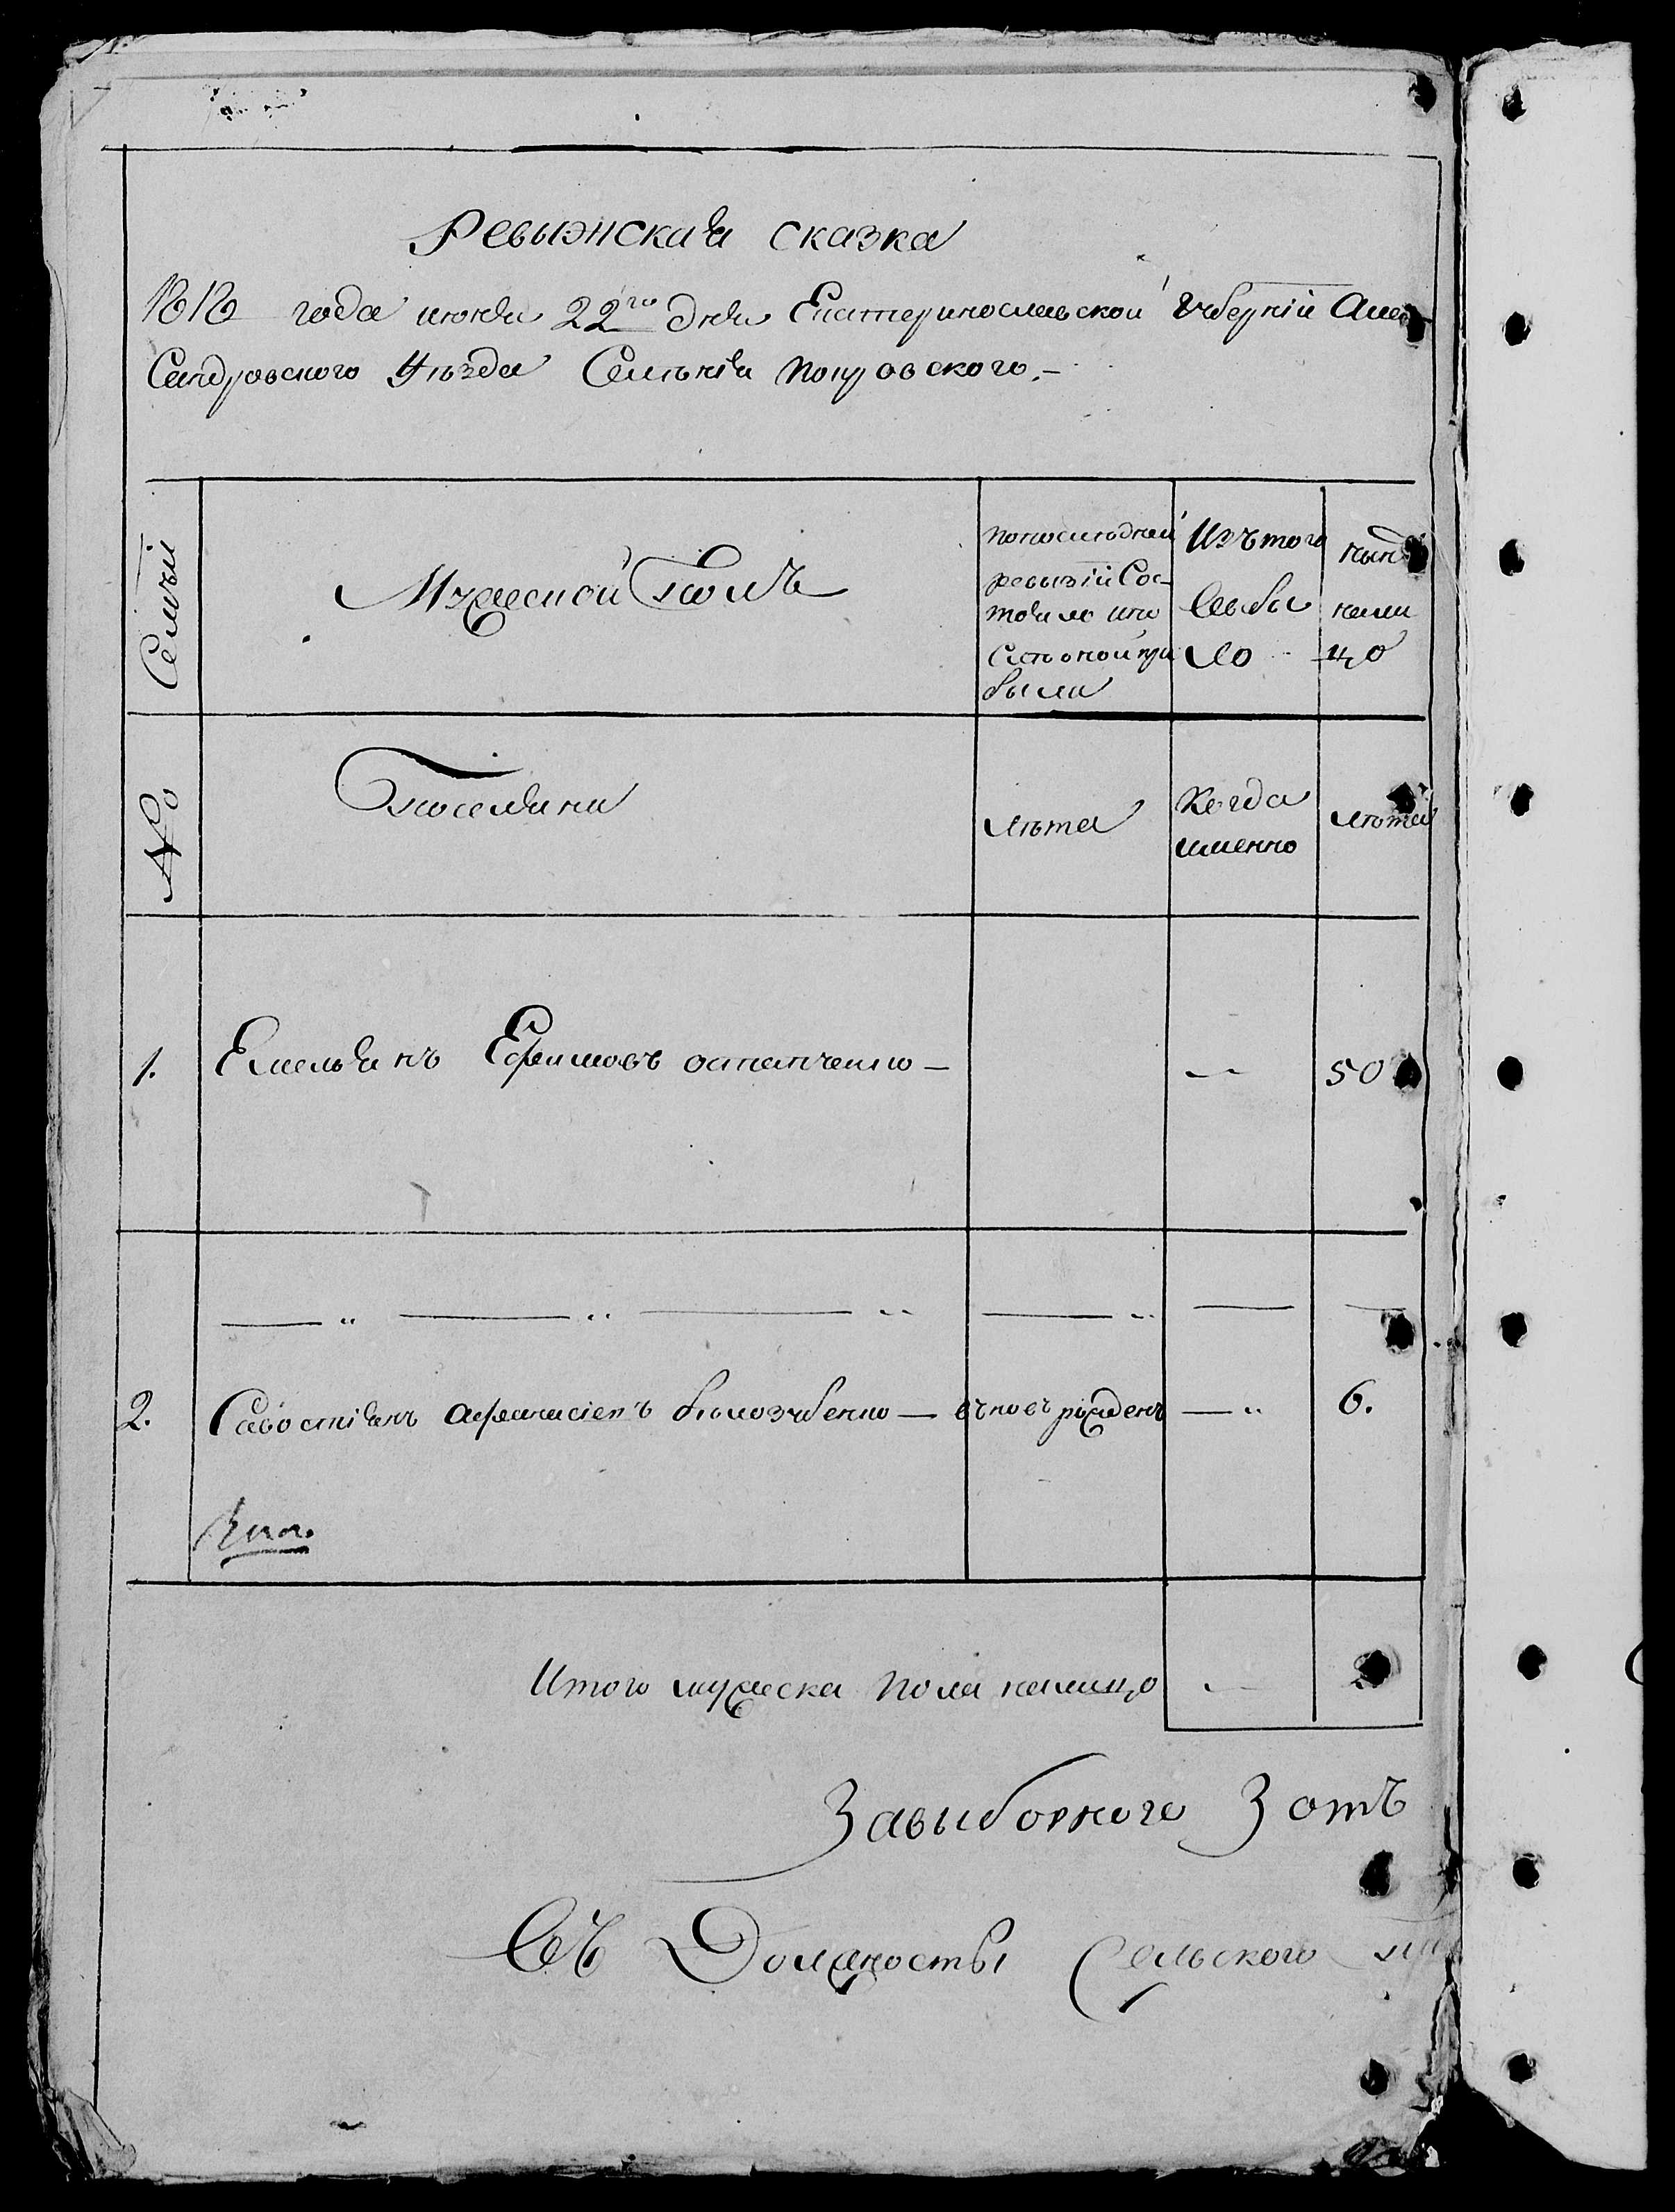 Ревызнская сказка
1818 года июня 22го дня Екатеринославской губернии Алек
Сандровского Уезда Селѣния Покровского.-
Семъи
Мужеской полъ
Попоследней ревызіи Сос-
тояло или
Послѣоной при
были
Изъ того
Выбы
ло
нын
нали
цо
№
Поселяни
лѣта
Когда
именно
лѣта
1.
Емельянъ Ефимовъ остапченко —
50
2.
Савостіянъ афанасіевъ белозубенко —
вновь рожденъ
— "
6.
Итого мужеска пола налицо
Завыборного Зотъ
Съ Должносты Сельского